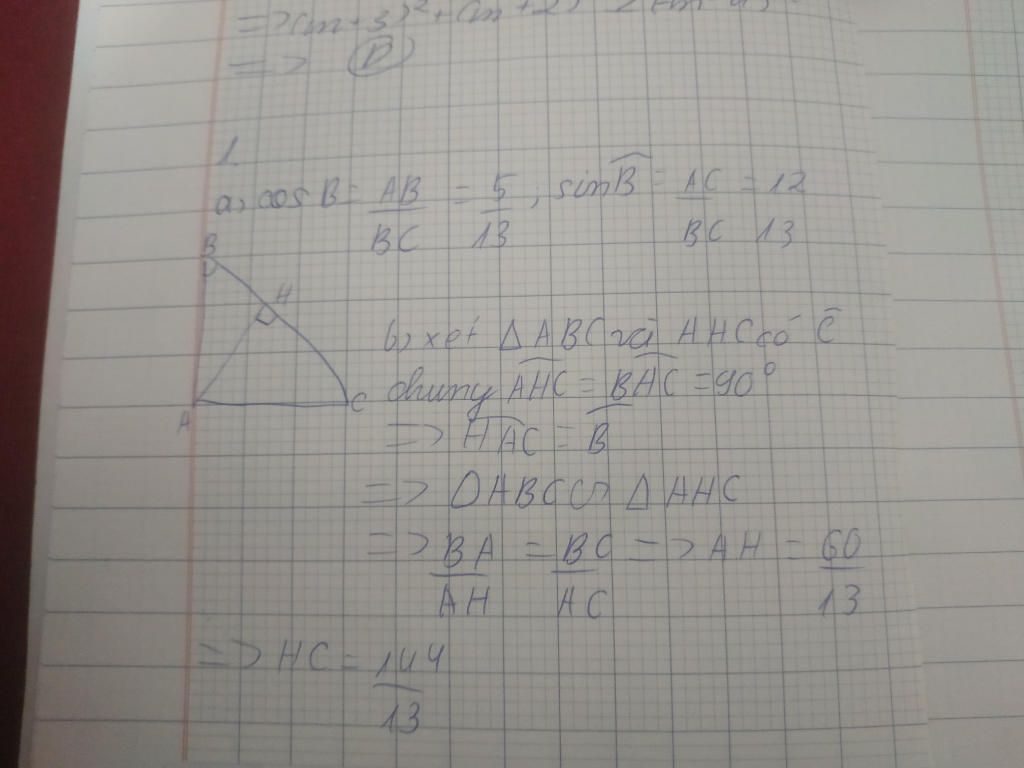 => (m+3)² + (m+2)
=> (P)
1.
a, cos B = AB/BC = 5/13, sin B̂ = AC/BC = 12/13
B
H
A
C
b, xét △ABC và AHC có Ĉ
chung AHC = BAC = 90°
=> HAC = B
=> △ABC ∽ △AHC
=> BA/AH = BC/AC => AH = 60/13
=> HC = 144/13